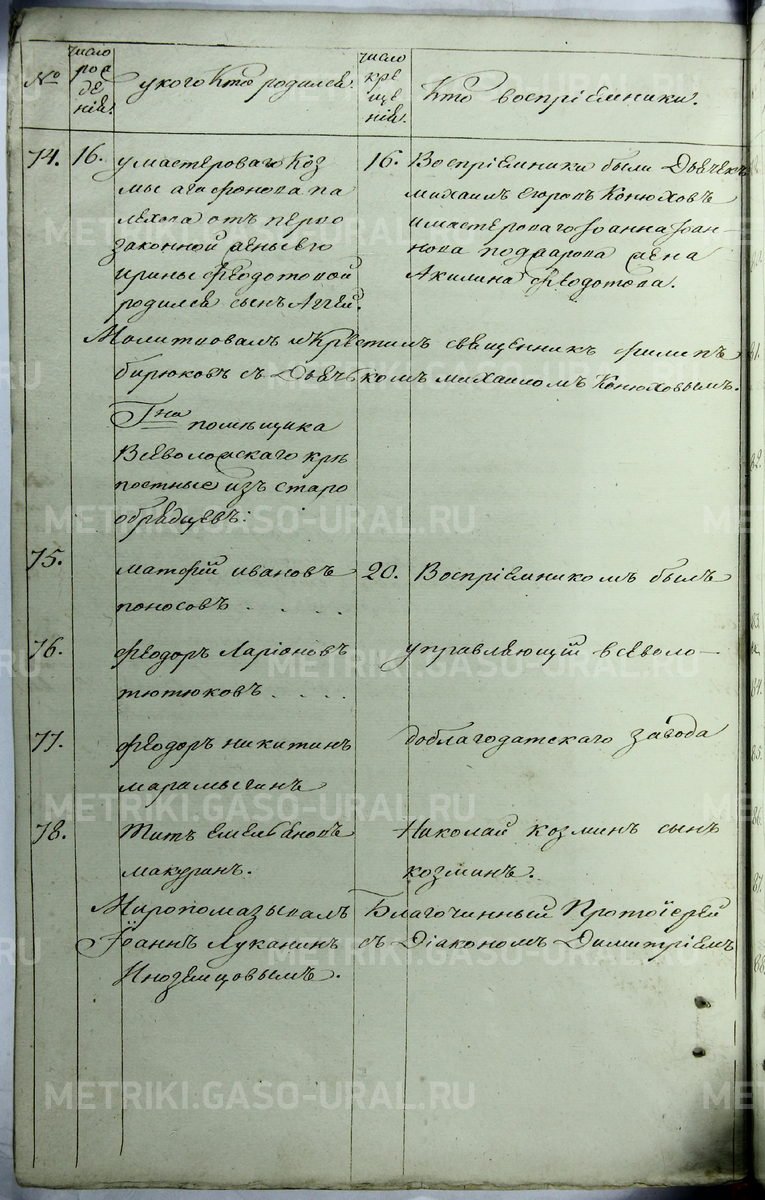 №
число рожденія.
у кого кто родился.
число крещенія.
Кто воспріемники.
74. 16. у мастероваго Коз
мы Агафонова па
лехова отъ перво
законной жены его
ирины Феодотовой
родился сынъ Аггей.
16. Воспріемники были Дьячекъ
михаилъ Егоровъ Конюховъ
и мастероваго Іоанна Іоан-
нова жена
Акилина Феодотова.
Молитвовалъ и крестилъ священникъ Филипъ
бирюковъ съ Дьячькомъ михаиломъ Конюховымъ.
Гна помѣщика
Всеволожскаго крѣ
постные изъ старо
обрядцевъ:
75. матфій ивановъ
поносовъ . . . .
20. Воспріемникомъ былъ
76. Феодоръ Ларіоновъ
тютюковъ . . . .
управляющій всеволо-
77. Феодоръ никитинъ
марамыгинъ
доблагодатскаго завода
78. Титъ емельяновъ
макуринъ.
Николай козминъ сынъ
козминъ.
Миропомазывалъ Благочинный Протоіерей
Іоаннъ Луканинъ съ Діакономъ Димитріемъ
Иноземцовымъ.
METRIKI.GASO-URAL.RU